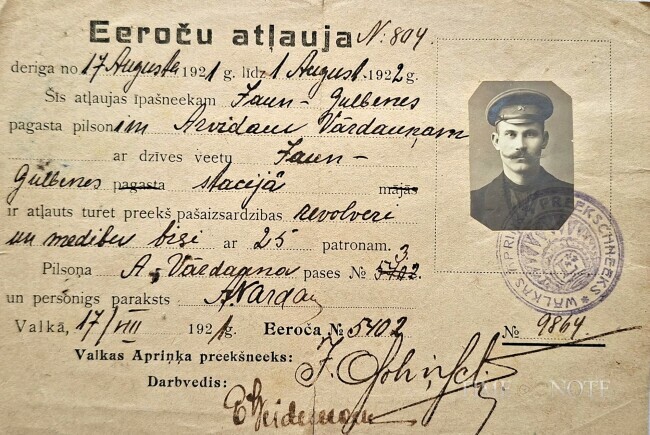 Eeroču atļauja N: 804.
derīga no 17 Augusta 1921 g. līdz 1 August. 1922 g.
Šīs atļaujas īpašneekam Jaun-Gulbenes
pagasta pilsonim Arvidam Vārdauņam
ar dzīves veetu Jaun-
Gulbenes pagasta stacijā mājās
ir atļauts turet preekš pašaizsardzības revolveri
un medibu bisi ar 25 patronam.
Pilsoņa A. Vārdauna pases № 3
5402.
un personīgs paraksts
Valkā, 17/VIII 1921 g. Eeroča № 5402
№ 9864.
Valkas Apriņķa preekšneeks:
Darbvedis:
WALKAS APRIŅĶA PREEKSCHNEEKS
NOTE